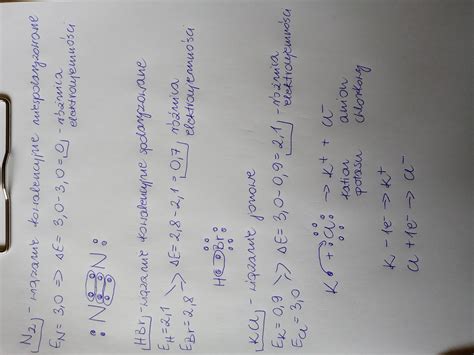 N₂ - wiązanie kowalencyjne niespolaryzowane
E_N = 3,0 => ΔE = 3,0 - 3,0 = 0 - różnica elektroujemności
:N≡N:
HBr - wiązanie kowalencyjne spolaryzowane
E_H = 2,1
E_Br = 2,8
>> ΔE = 2,8 - 2,1 = 0,7 różnica elektroujemności
H Br
KCl - wiązanie jonowe
E_K = 0,9
E_Cl = 3,0
>> ΔE = 3,0 - 0,9 = 2,1 - różnica elektroujemności
K + Cl → K⁺ + Cl⁻
kation potasu
anion chlorkowy
K - 1e⁻ → K⁺
Cl + 1e⁻ → Cl⁻